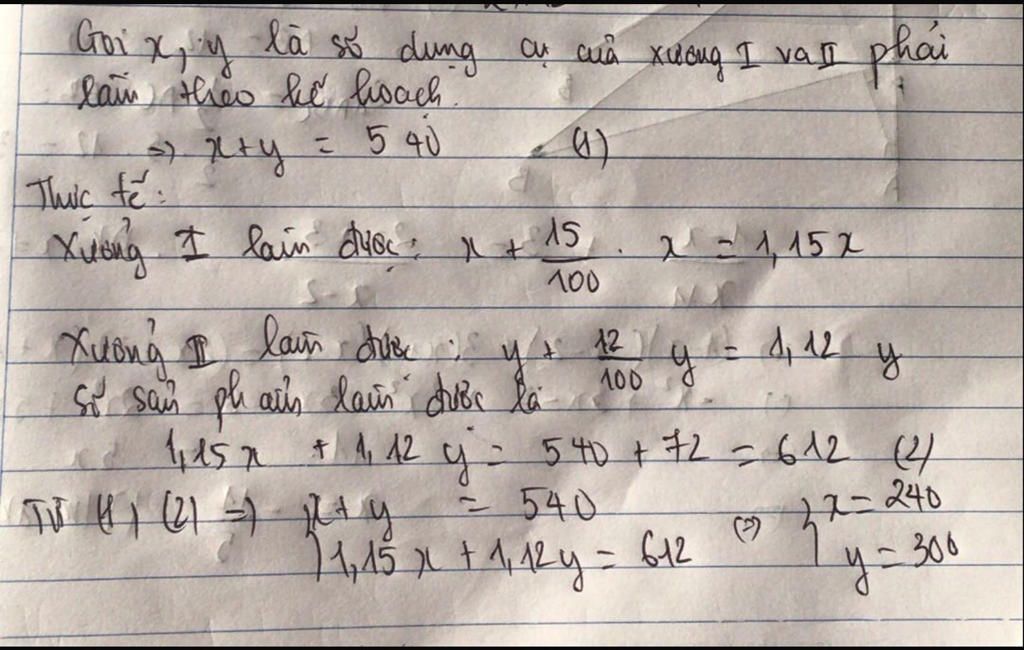 Gọi x, y là số dụng cụ của xương I va II phải
làm theo kế hoạch.
=> x+y = 540 (1)
Thực tế:
Xưởng I làm được: x + 15/100 . x = 1,15x
Xưởng II làm được : y + 12/100 y = 1,12 y
số sản phẩm làm được là
1,15x + 1,12 y = 540 + 72 = 612 (2)
Từ (1) (2) => { x+y = 540 (=) { x = 240
{ 1,15x + 1,12y = 612 { y = 300